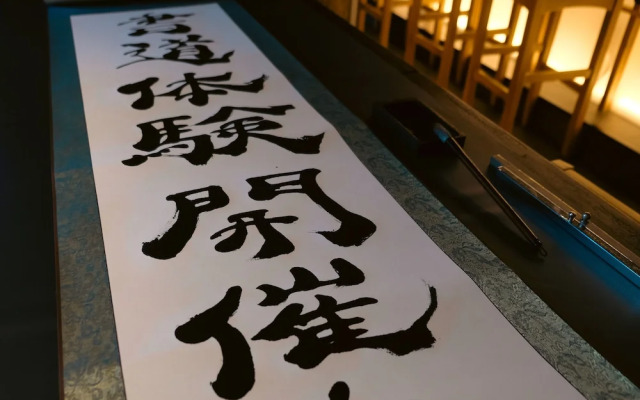 書道体験開催